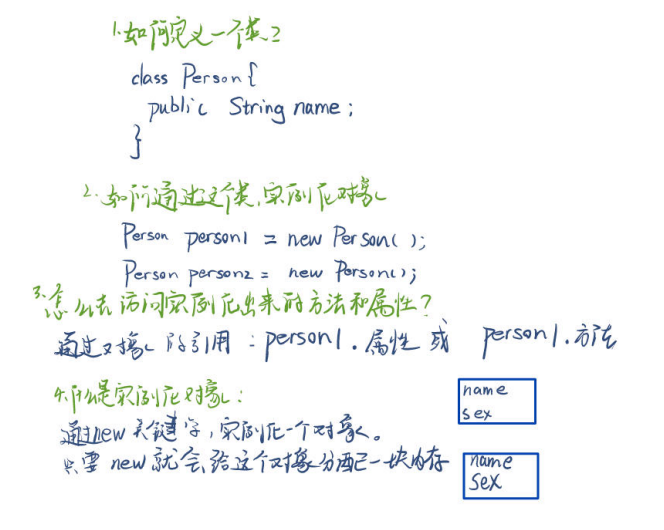 1.如何定义一个类?
class Person{
public String name;
}
2.如何通过这个类,实例化对象
Person person1 = new Person( );
Person person2 = new Person();
3.怎么去访问实例化出来的方法和属性?
通过对象的引用:person1.属性 或 person1.方法
4.什么是实例化对象:
通过new关键字,实例化一个对象。
只要new就会给这个对象分配一块内存
name
sex
name
sex